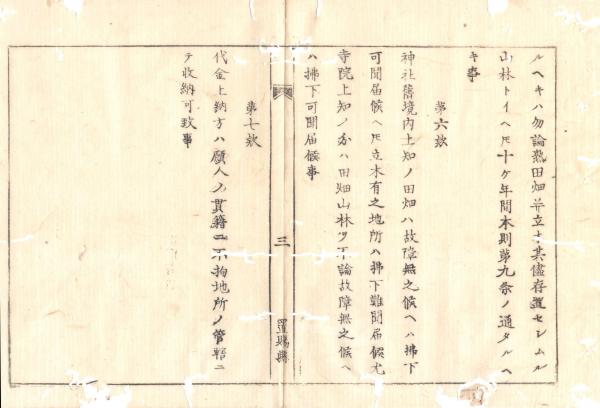 ルヘキハ勿論熟田畑并立木其儘存置セシムル
山林トイヘ𪜈十ケ年間本則第九条ノ通タルヘ
キ事
第六欵
神社舊境内上知ノ田畑ハ故障無之候ヘハ拂下
可聞届候ヘ𪜈立木有之地所ハ拂下難聞届候尤
寺院上知ノ分ハ田畑山林ヲ不論故障無之候ヘ
ハ拂下可聞届候事
三
置賜縣
第七欵
代金上納方ハ願人ノ貫籍ニ不拘地所ノ管轄ニ
テ收納可致事